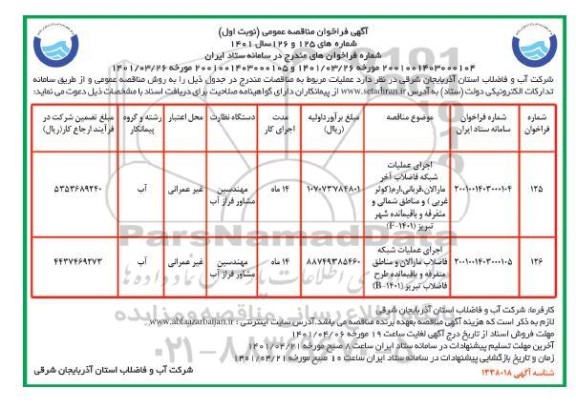 آگهی فراخوان مناقصه عمومی (نوبت اول)
شماره های ۱۲۵ و ۱۲۶ سال ۱۴۰۱
شماره فراخوان های مندرج در سامانه ستاد ایران
۲۰۰۱۰۰۱۴۰۳۰۰۰۱۰۴ مورخه ۱۴۰۱/۰۳/۲۶ و ۲۰۰۱۰۰۱۴۰۳۰۰۰۱۰۵ مورخه ۱۴۰۱/۰۳/۲۶
شرکت آب و فاضلاب استان آذربایجان شرقی در نظر دارد عملیات مربوط به مناقصات مندرج در جدول ذیل را به روش مناقصه عمومی و از طریق سامانه
تدارکات الکترونیکی دولت (ستاد) به آدرس www.setadiran.ir از پیمانکاران دارای گواهینامه صلاحیت برای دریافت اسناد با مشخصات ذیل دعوت می نماید:
شماره فراخوان
شماره فراخوان سامانه ستاد ایران
موضوع مناقصه
مبلغ برآورد اولیه (ریال)
مدت اجرای کار
دستگاه نظارت
محل اعتبار
رشته و گروه پیمانکار
مبلغ تضمین شرکت در فرآیند ارجاع کار (ریال)
۱۲۵
۲۰۰۱۰۰۱۴۰۳۰۰۰۱۰۴
اجرای عملیات
شبکه فاضلاب آخر
مارالان،قربانی،ارم(کوثر
غربی) و مناطق شمالی و
متفرقه و باقیمانده شهر
تبریز (F-۱۴۰۱)
۱۰۷۰۷۳۷۸۴۸۰۱
۱۴ ماه
مهندسین مشاور فراز آب
غیر عمرانی
آب
۵۳۵۳۶۸۹۲۴۰
۱۲۶
۲۰۰۱۰۰۱۴۰۳۰۰۰۱۰۵
اجرای عملیات شبکه
فاضلاب مارالان و مناطق
متفرقه و باقیمانده طرح
فاضلاب تبریز (B-۱۴۰۱)
۸۸۷۴۹۳۸۵۴۶۰
۱۴ ماه
مهندسین مشاور فراز آب
غیر عمرانی
آب
۴۴۳۷۴۶۹۲۷۳
کارفرما: شرکت آب و فاضلاب استان آذربایجان شرقی
لازم به ذکر است که هزینه آگهی مناقصه بعهده برنده مناقصه می باشد.آدرس سایت اینترنتی : www.abfaazarbaijan.ir
مهلت فروش اسناد از تاریخ درج آگهی لغایت ساعت ۱۹ مورخه ۱۴۰۱/۰۴/۰۶
آخرین مهلت تسلیم پیشنهادات در سامانه ستاد ایران ساعت ۸ صبح مورخه ۱۴۰۱/۰۴/۲۱
زمان و تاریخ بازگشایی پیشنهادات در سامانه ستاد ایران ساعت ۱۰ صبح مورخه ۱۴۰۱/۰۴/۲۱
شناسه آگهی ۱۳۳۸۰۱۸
شرکت آب و فاضلاب استان آذربایجان شرقی
ParsNamadData